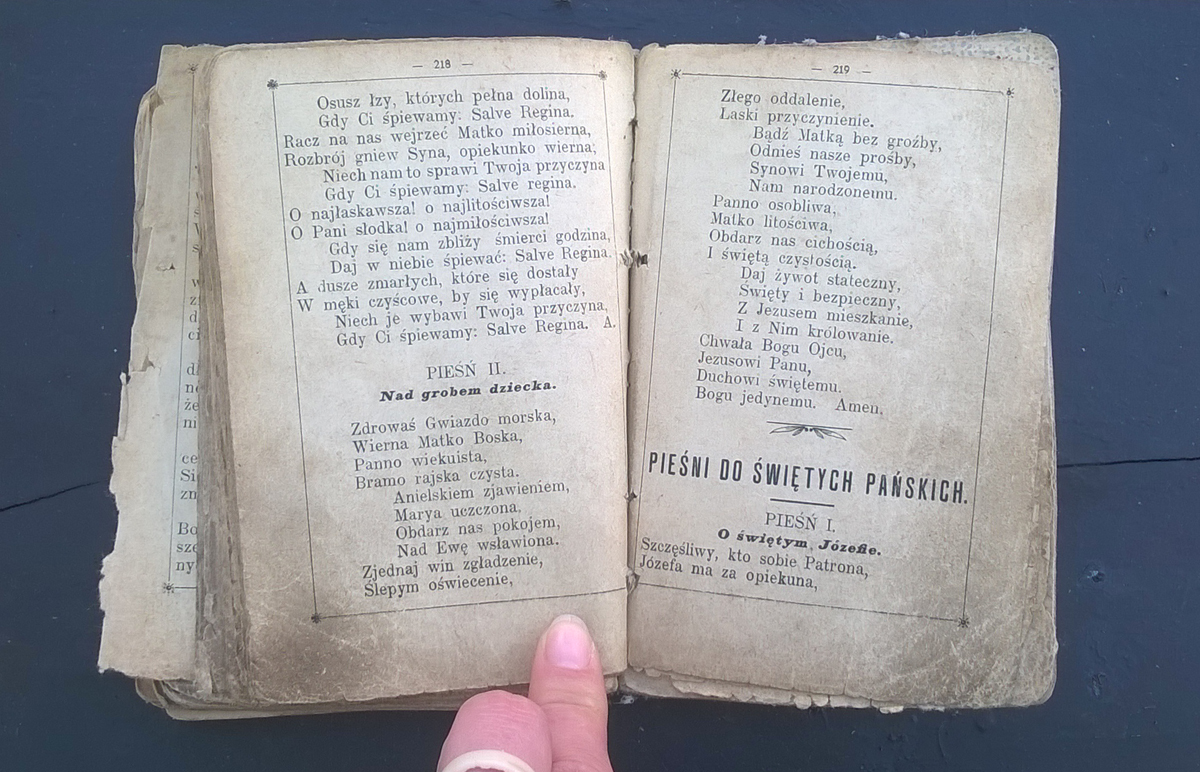 — 218 —
Osusz łzy, których pełna dolina,
Gdy Ci śpiewamy: Salve Regina.
Racz na nas wejrzeć Matko miłosierna,
Rozbrój gniew Syna, opiekunko wierna;
Niech nam to sprawi Twoja przyczyna
Gdy Ci śpiewamy: Salve regina.
O najłaskawsza! o najlitościwsza!
O Pani słodka! o najmiłościwsza!
Gdy się nam zbliży śmierci godzina,
Daj w niebie śpiewać: Salve Regina.
A dusze zmarłych, które się dostały
W męki czyścowe, by się wypłacały,
Niech je wybawi Twoja przyczyna,
Gdy Ci śpiewamy: Salve Regina. A.
PIEŚŃ II.
Nad grobem dziecka.
Zdrowaś Gwiazdo morska,
Wierna Matko Boska,
Panno wiekuista,
Bramo rajska czysta.
Anielskiem zjawieniem,
Marya uczczona,
Obdarz nas pokojem,
Nad Ewę wsławiona.
Zjednaj win zgładzenie,
Ślepym oświecenie,
— 219 —
Złego oddalenie,
Łaski przyczynienie.
Bądź Matką bez groźby,
Odnieś nasze prośby,
Synowi Twojemu,
Nam narodzonemu.
Panno osobliwa,
Matko litościwa,
Obdarz nas cichością,
I świętą czystością.
Daj żywot stateczny,
Święty i bezpieczny,
Z Jezusem mieszkanie,
I z Nim królowanie.
Chwała Bogu Ojcu,
Jezusowi Panu,
Duchowi świętemu.
Bogu jedynemu. Amen.
PIEŚNI DO ŚWIĘTYCH PAŃSKICH.
PIEŚŃ I.
O świętym Józefie.
Szczęśliwy, kto sobie Patrona,
Józefa ma za opiekuna,